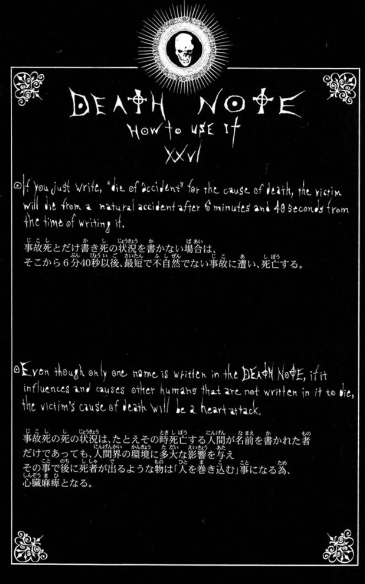 DEATH NOTE
HOW to USE IT
XXVI
If you just write, "die of accident" for the cause of death, the victim
will die from a natural accident after 6 minutes and 40 seconds from
the time of writing it.
事故死とだけ書き死の状況を書かない場合は、
そこから6分40秒以後、最短で不自然でない事故に遭い、死亡する。
Even though only one name is written in the DEATH NOTE, if it
influences and causes other humans that are not written in it to die,
the victim's cause of death will be a heart attack.
事故死の死の状況は、たとえその時死亡する人間が名前を書かれた者
だけであっても、人間界の環境に多大な影響を与え
その事で後に死者が出るような物は「人を巻き込む」事になる為、
心臓麻痺となる。